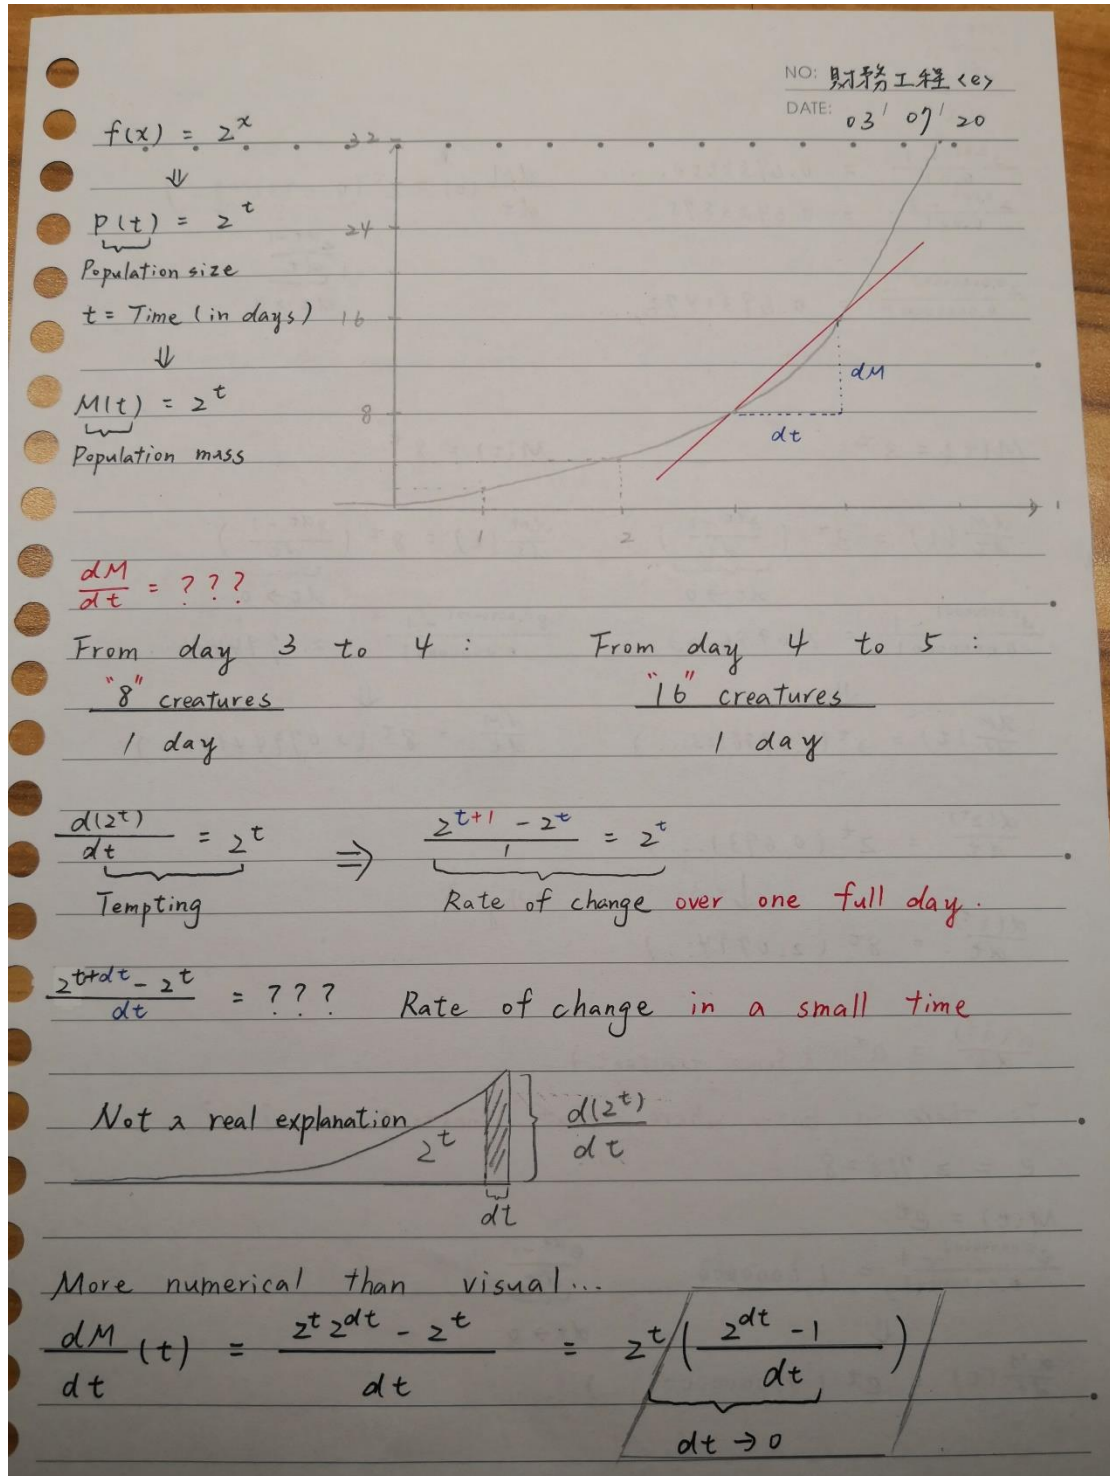 NO: 財務工程<e>
DATE: 03/ 07/ 20
f(x) = 2^x
⇓
P(t) = 2^t
Population size
t = Time (in days)
⇓
M(t) = 2^t
Population mass
32
24
16
8
1
2
dM
dt
dM/dt = ???
From day 3 to 4 :
"8" creatures
1 day
From day 4 to 5 :
"16" creatures
1 day
d(2^t)/dt = 2^t ⇒ (2^{t+1} - 2^t)/1 = 2^t
Tempting
Rate of change over one full day.
(2^{t+dt} - 2^t)/dt = ??? Rate of change in a small time
Not a real explanation
2^t
d(2^t)/dt
dt
More numerical than visual...
dM/dt (t) = (2^t 2^{dt} - 2^t)/dt = 2^t ((2^{dt} - 1)/dt)
dt → 0